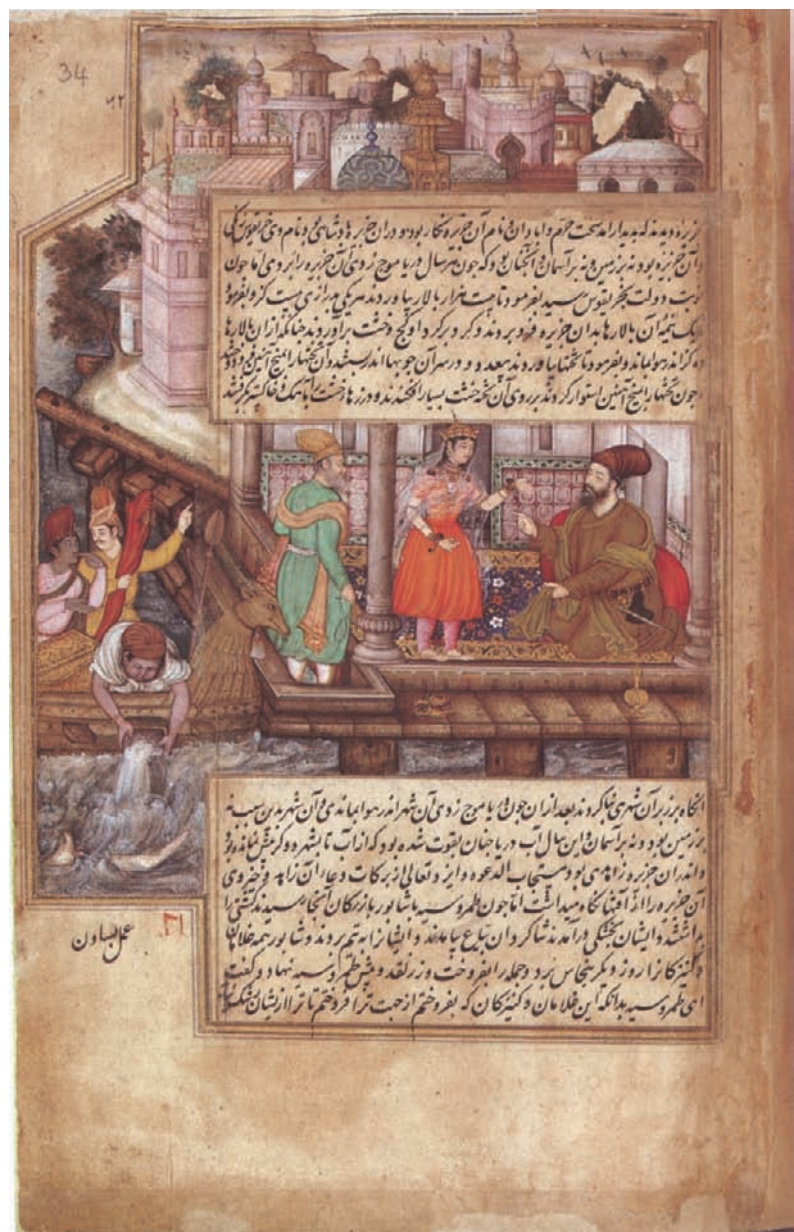 34
دیدند که پدیدار آمد سخت خرم و ابادان و نام آن جزیره نکار بود و دران جزیره پادشاهی بود نام وی
و آن جزیره بود نه بر زمین و نه بر آسمان و آنچنان بود که چون هر سال دریا موج زدی آن جزیره را ببردی اما چون
نوبت دولت رسید بفرمود تا بیست هزار بالار بیاوردند هر یکی بدرازی بیست کز و بفرمود
یک نیمهٔ آن بالارها بدان جزیره فرو بردند و کرد بر کرد او کچ و خشت برآوردند چنانکه ازان بالارها
ده کز اندر هوا بماند و بفرمود تا تختها بیاوردند بعد و بر سر آن چوبها اندر بستند و آن تختها را بمیخ آهنین
چون تختها را بمیخ آهنین استوار کردند بر روی آن تخته خشت بسیار افکندند و درزهای خشت را
انکاه بر زبر آن شهری بنا کردند بعد ازان چون دریا موج زدی آن شهر اندر هوا بماندی و آن شهر بدین سبب نه
بر زمین بود و نه بر آسمان و این سال آب دریا چنان بقوت شده بود که از آب تا بشهر دو کز بیش نمانده بود
و اندران جزیره زاهدی بود مستجاب الدعوه و ایزد تعالی از برکات دعای آن زاهد
آن جزیره را از آفتها نکاه میداشت اما چون طمروسیه با شاپور بازرکان آنجا رسیدند کشتی را
بداشتند و ایشان بخشکی درآمدند شاکردان بیامدند و ایشانرا به تیم بردند و شاپور همه غلامان
و کنیزکانرا روز دیکر بنخاس برد و جمله را بفروخت و زر نقد و پیش طمروسیه نهاد و کفت
ای طمروسیه بدانکه این غلامان و کنیزکان که بفروختم از جهت ترا فروختم تا ترا از ایشان
عمل بساون